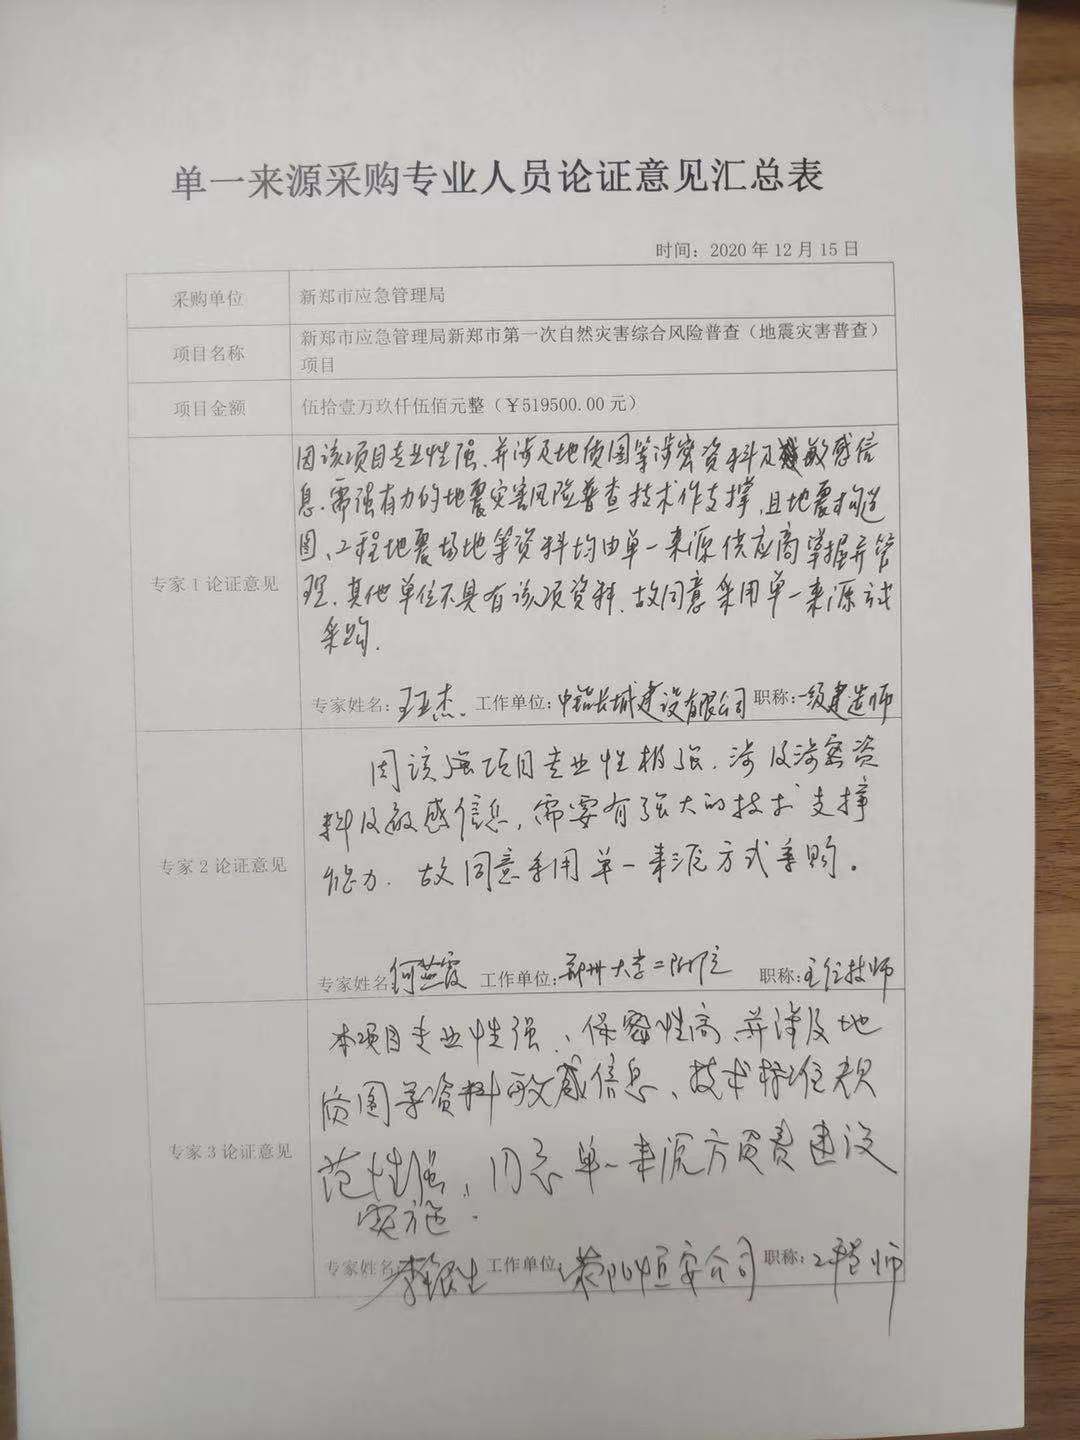 单一来源采购专业人员论证意见汇总表
时间：2020年12月15日
采购单位
新郑市应急管理局
项目名称
新郑市应急管理局新郑市第一次自然灾害综合风险普查（地震灾害普查）
项目
项目金额
伍拾壹万玖仟伍佰元整（￥519500.00元）
专家1论证意见
因该项目专业性强、并涉及地质图等涉密资料及敏感信
息、需强有力的地震灾害风险普查技术作支撑，且地震构造
图、工程地震场地等资料均由单一来源供应商掌握并管
理，其他单位不具有该项资料，故同意采用单一来源方式
采购.
专家姓名：王亚杰 工作单位：中铭长城建设有限公司 职称：一级建造师
专家2论证意见
因该项目专业性极强，涉及涉密资
料及敏感信息，需要有强大的技术支撑
能力，故同意采用单一来源方式采购。
专家姓名 何燕霞 工作单位：郑州大学二附院 职称：主任技师
专家3论证意见
本项目专业性强、保密性高，并涉及地
质图等资料敏感信息、技术标准规
范性强，同意单一来源方 建设
实施.
专家姓名 李 生 工作单位 恒安公司 职称：工程师